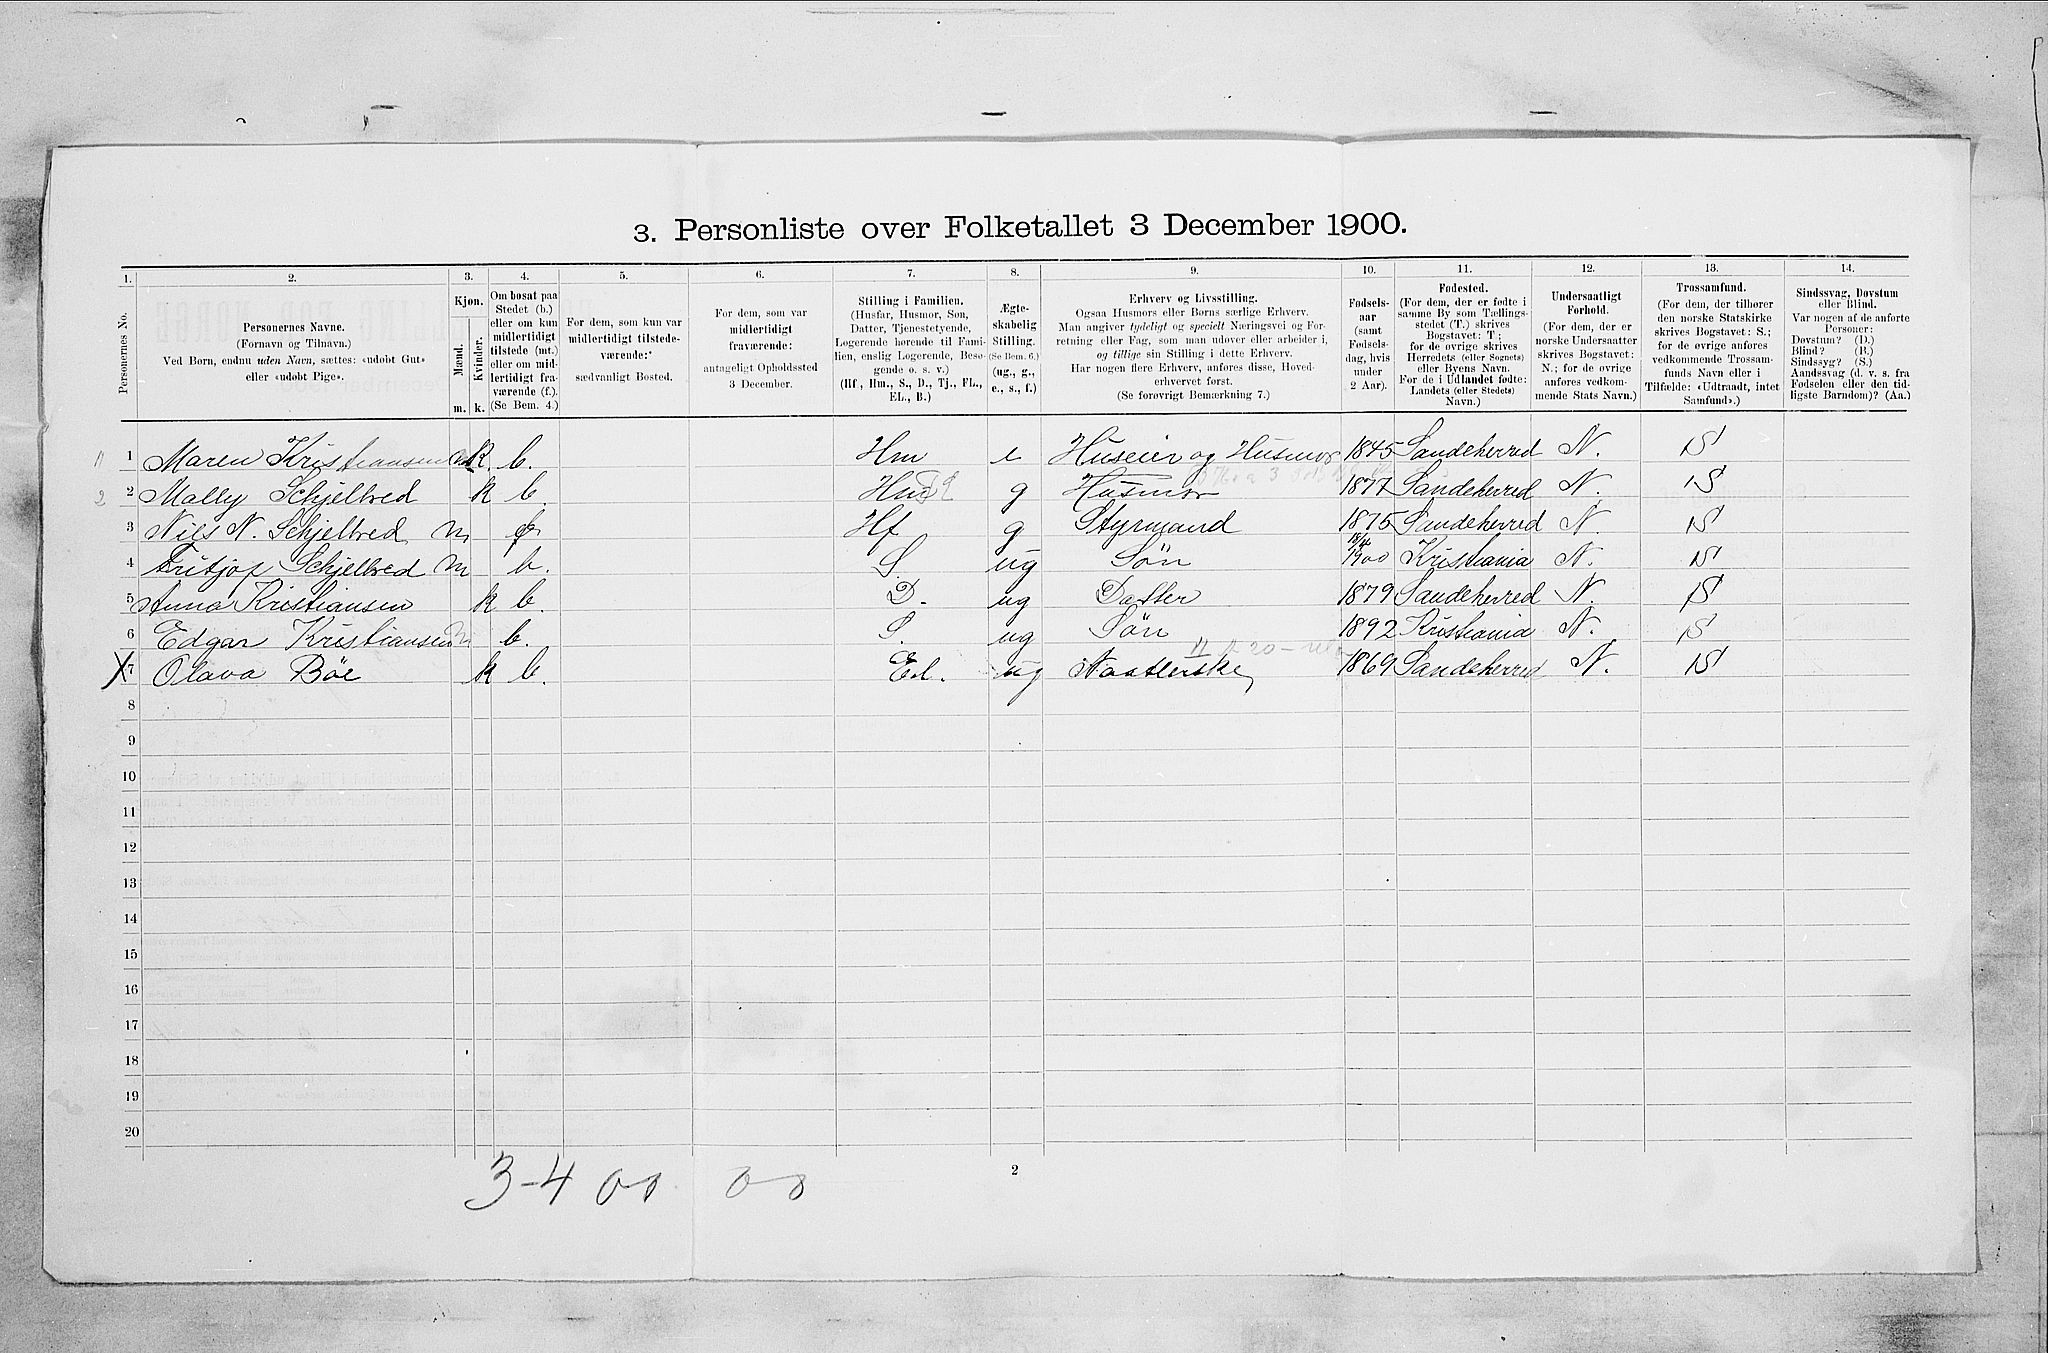 3. Personliste over Folketallet 3 December 1900.
1. 2. 3. 4. 5. 6. 7. 8. 9. 10. 11. 12. 13. 14.
Personernes No.
Personernes Navne.
(Fornavn og Tilnavn.)
Ved Børn, endnu uden Navn, sættes: «udøbt Gut»
eller «udøbt Pige».
Kjøn.
Mænd.
Kvinder.
m. k.
Om bosat paa
Stedet (b.)
eller om kun
midlertidigt
tilstede (mt.)
eller om mid-
lertidigt fra-
værende (f.).
(Se Bem. 4.)
For dem, som kun var
midlertidigt tilstede-
værende:*
sædvanligt Bosted.
For dem, som var
midlertidigt
fraværende:
antageligt Opholdssted
3 December.
Stilling i Familien.
(Husfar, Husmor, Søn,
Datter, Tjenestetyende,
Logerende hørende til Fami-
lien, enslig Logerende, Besø-
gende o. s. v.)
(Hf., Hm., S., D., Tj., FL.,
EL., B.)
Ægte-
skabelig
Stilling.
(Se Bem. 6.)
(ug., g.,
e., s., f.)
Erhverv og Livsstilling.
Ogsaa Husmors eller Børns særlige Erhverv.
Man angiver tydeligt og specielt Næringsvei og For-
retning eller Fag, som man udøver eller arbeider i,
og tillige sin Stilling i dette Erhverv.
Har nogen flere Erhverv, anføres disse, Hoved-
erhvervet først.
(Se forøvrigt Bemærkning 7.)
Fødsels-
aar
(samt
Fødsels-
dag, hvis
under
2 Aar).
Fødested.
(For dem, der er fødte i
samme By som Tællings-
stedet (T.) skrives
Bogstavet: T;
for de øvrige skrives
Herredets (eller Sognets)
eller Byens Navn.
For de i Udlandet fødte:
Landets (eller Stedets)
Navn.)
Undersaatligt
Forhold.
(For dem, der er
norske Undersaatter
skrives Bogstavet:
N.; for de øvrige
anføres vedkom-
mende Stats Navn.)
Trossamfund.
(For dem, der tilhører
den norske Statskirke
skrives Bogstavet: S.;
for de øvrige anføres
vedkommende Trossam-
funds Navn eller i
Tilfælde: «Udtraadt, intet
Samfund».)
Sindssvag, Døvstum
eller Blind.
Var nogen af de anførte
Personer:
Døvstum? (D.)
Blind? (B.)
Sindssyg? (S.)
Aandssvag (d. v. s. fra
Fødselen eller den tid-
ligste Barndom)? (Aa.)
1 Maren Kristiansen k. b. Hm e Huseier og Husmor 1845 Sandeherred N. S
2 Mally Schjelbred k b. Hm g Husmor 1877 Sandeherred N. S
3 Nils N. Schjelbred m Hf g Styrmand 1875 Sandeherred N. S
4 Fritjof Schjelbred m b. S. ug Søn 1900 Kristiania N. S
5 Anna Kristiansen k b. D. ug Datter 1879 Sandeherred N. S
6 Edgar Kristiansen m b. S. ug Søn 1892 Kristiania N. S
X 7 Olava Bøe k b. El. ug Naatlerske 1869 Sandeherred N. S
8
9
10
11
12
13
14
15
16
17
18
19
20
3-4
2